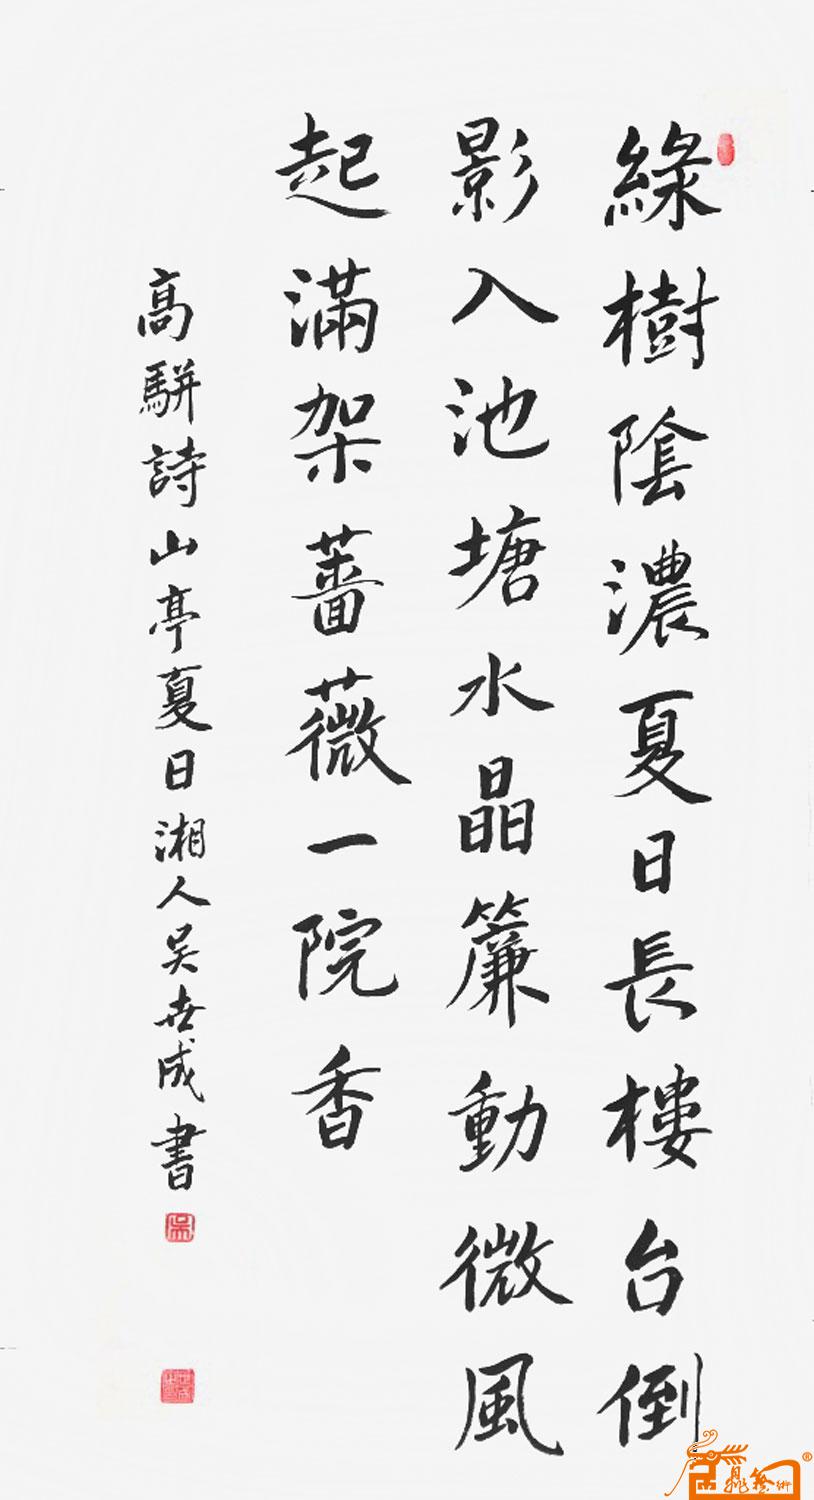 綠樹陰濃夏日長樓台倒
影入池塘水晶簾動微風
起滿架薔薇一院香
高駢詩山亭夏日湘人吴世成書
吴